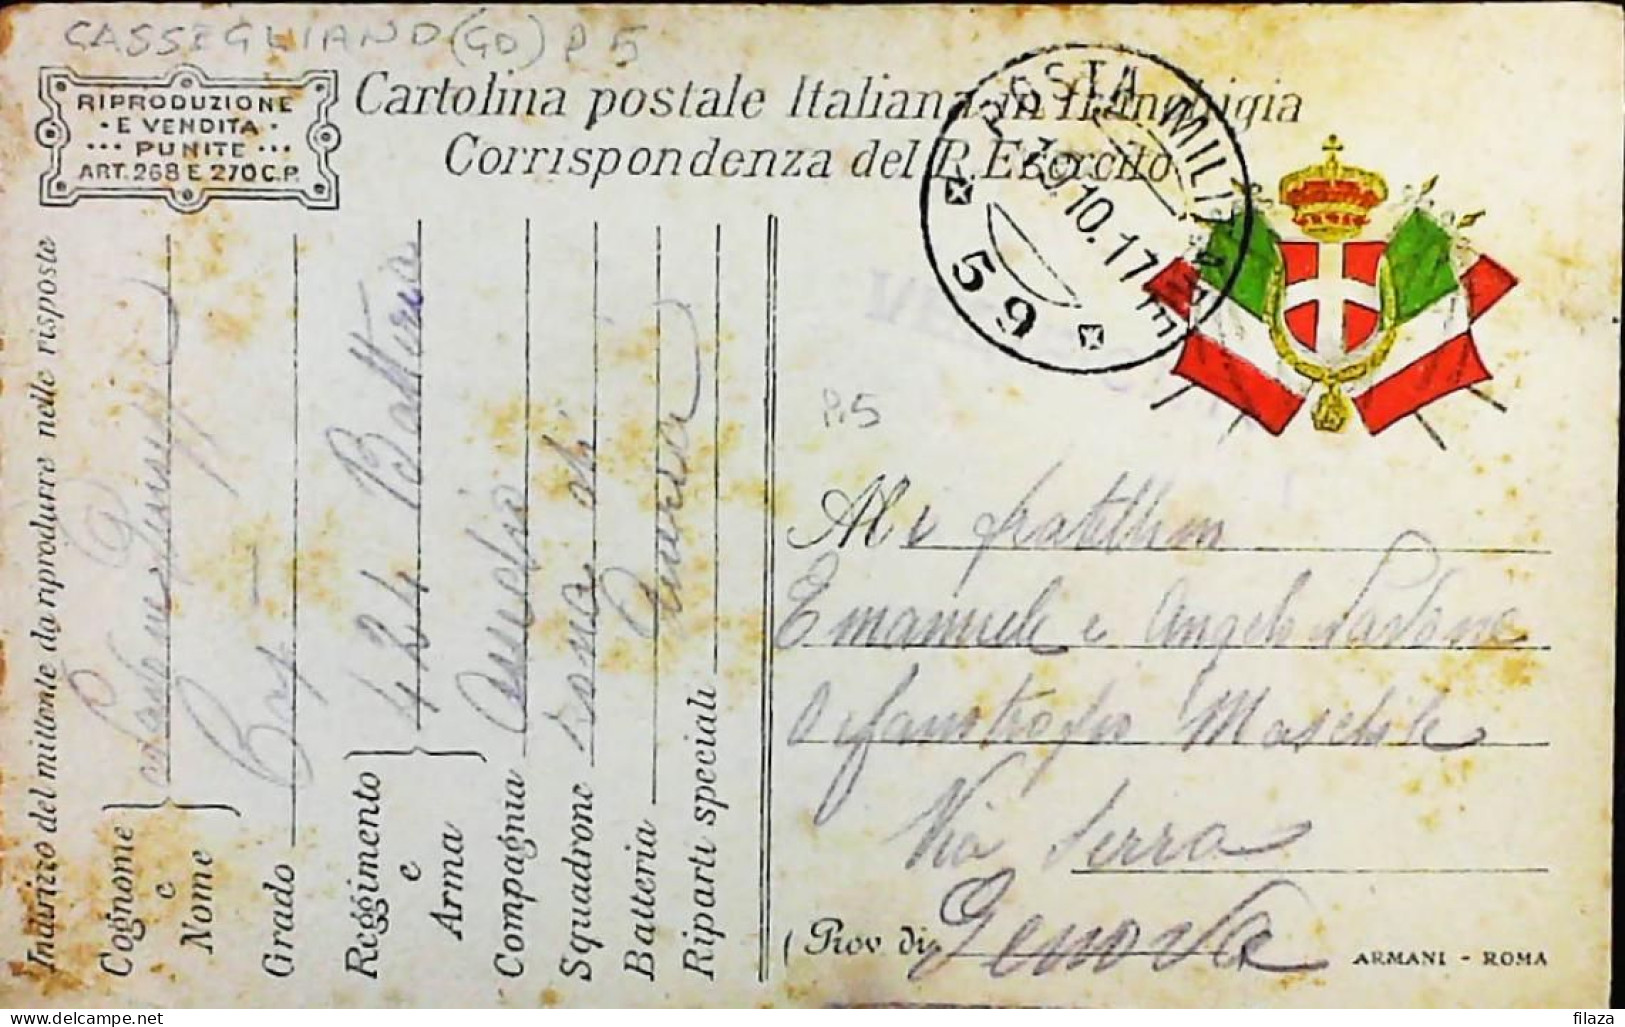 CASSEGLIANO (GO) P 5
RIPRODUZIONE
E VENDITA
PUNITE
ART. 268 E 270 C.P.
Cartolina postale Italiana in franchigia
Corrispondenza del R. Esercito
POSTA MILITARE
10.17
59
P.5
Indirizzo del mittente da riprodurre nelle risposte
Cognome e Nome
Grado Cap
Reggimento e Arma 424 Batteria
Compagnia Assedio
Squadrone zona di
Batteria guerra
Riparti speciali
Al i fratellini
Emanuele e Angelo Ladone
Orfanotrofio Maschile
Via Serra
Prov. di Genova
ARMANI - ROMA
filaza
© delcampe.net